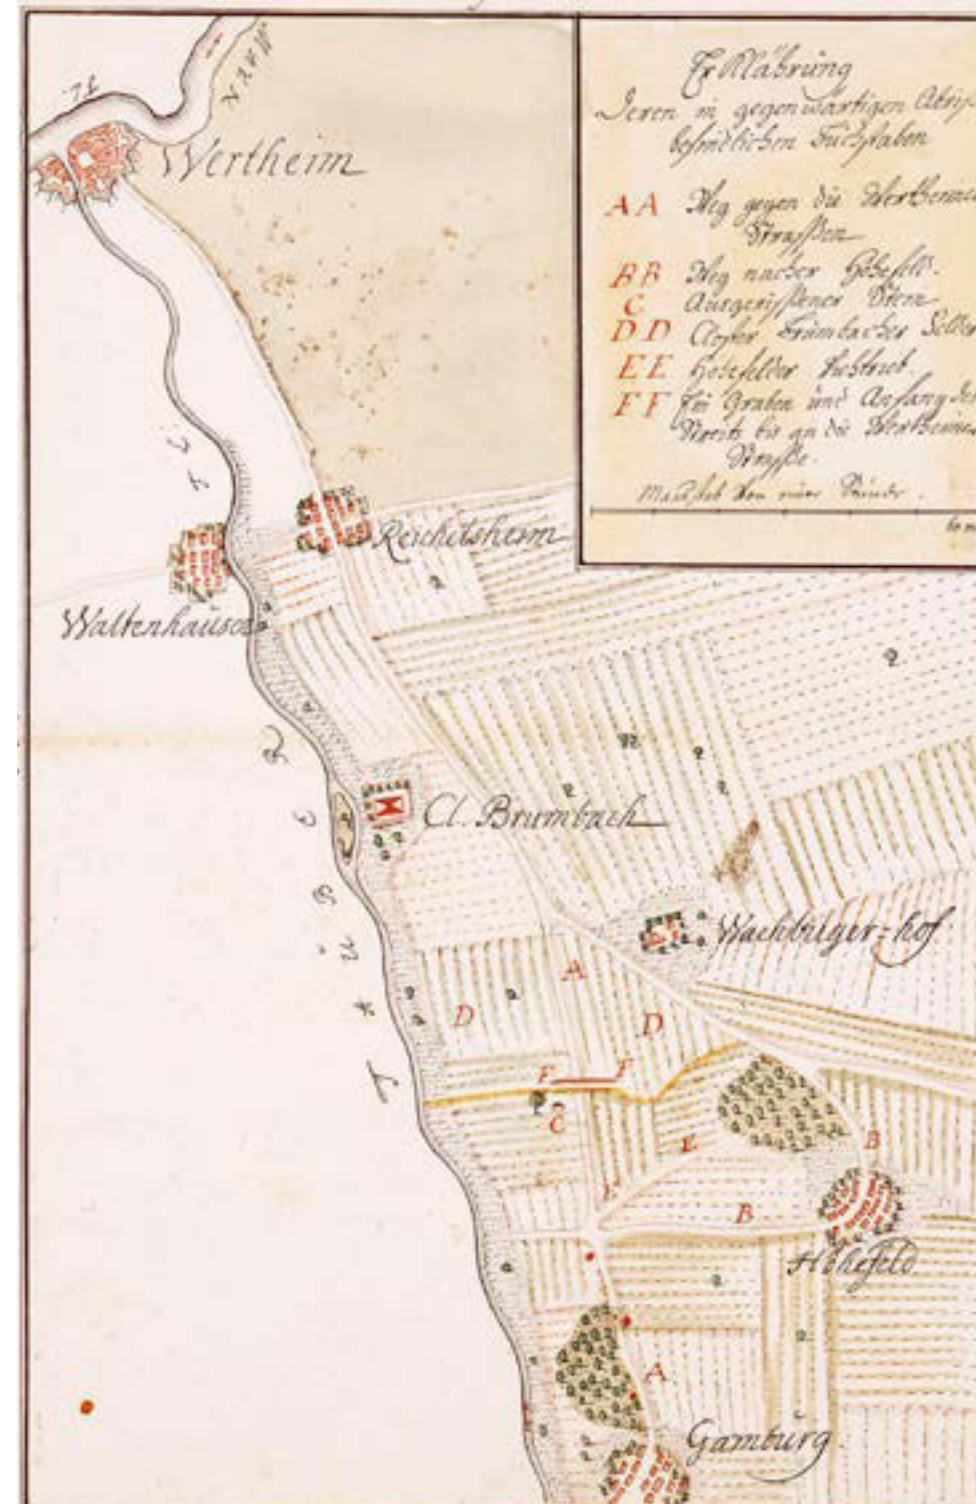 Erklährung
Deren in gegenwärtigen Abriß
befindlichen Buchstaben
AA Weg gegen die Wertheimer
Straßen
BB Weg nacher Höhefeld.
C Ausgerißener Stein
DD Closter Brumbacher
EE Höhefelder Viehtrieb.
FF Ein Graben und Anfang des
Streits bis an die Wertheimer
Straße.
Maasstab Von einer Stunde.
FL.
MAYN
Wertheim
Reichelsheim
Waltenhausen
Cl. Brumbach
Wachbulger=hof
A
D
D
F
F
C
E
B
B
Höhefeld
A
Gamburg.